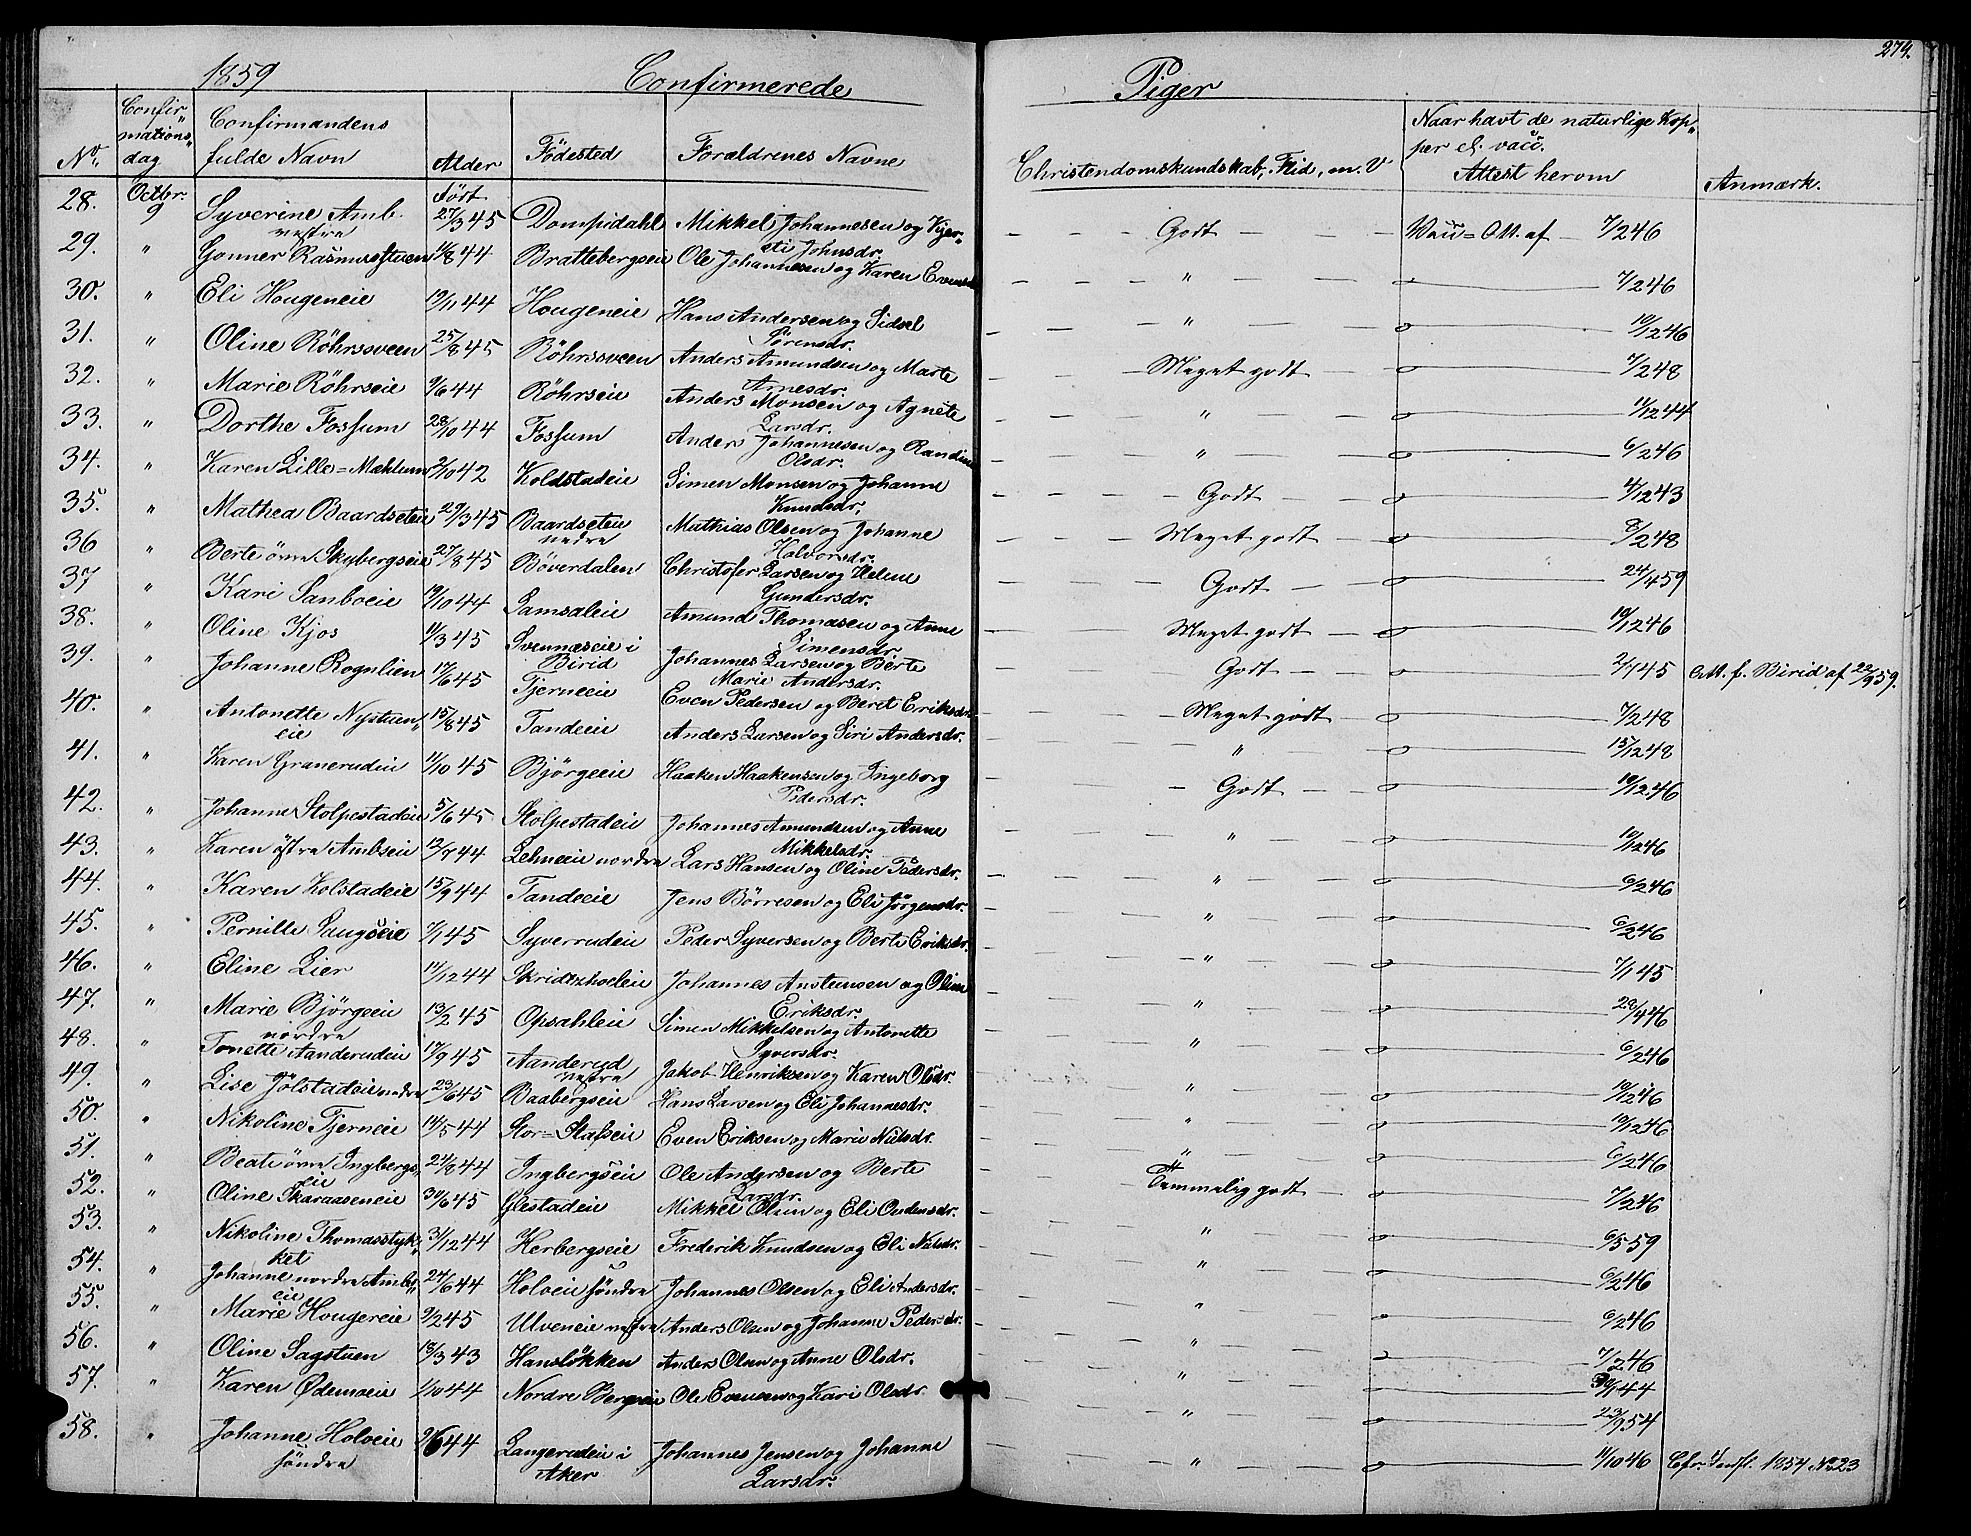 274.
1859 Confirmerede Piger
No. Confir„ mations„ dag Confirmandens fulde Navn Alder Födested Forældrenes Navne Christendomskundskab, Flid, m. V Naar havt de naturlige Kop„ per el. vacc. Attest herom Anmærk.
28. Octbr. 9 Syverine Amb. vestre Født 27/3 45 Dompidahl Mikkel Johannesen og Kjer„ sti Johnsdr. Godt Vacc= Att. af 7/2 46
29. " Gonner Rasmusstuen 1/8 44 Brattebergseie Ole Johannesen og Karen Evensd " 7/2 46
30. " Eli Hougeneie 19/11 44 Hougeneie Hans Andersen og Sidsel Sörensdr. " 10/12 46
31. " Oline Röhrssveen 25/8 45 Röhrssveen Anders Amundsen og Marte Arnesdr. Meget godt 7/2 48
32. " Marie Röhrseie 9/6 44 Röhrseie Anders Monsen og Agnete Larsdr. " 11/12 44
33. " Dorthe Fossum 28/10 44 Fossum Anders Johannesen og Randine Olsdr. " 6/2 46
34. " Karen Lille=Mæhlum 2/10 42 Koldstadeie Simen Monsen og Johanne Knudsdr. Godt 4/12 43
35. " Mathea Baardseteie 29/3 45 Baardseteie nedre Mathias Olsen og Johanne Halvorsdr. Meget godt 8/2 48
36 " Berte övre Skybergseie 27/8 45 Böverdalen Christofer Larsen og Helene Gundersdr. Godt 24/4 59
37 " Kari Sanboeie 19/10 44 Samsaleie Amund Thomasen og Anne Simensdr. Meget godt 19/12 46
38. " Oline Kjos 11/3 45 Svennæseie i Birid Johannes Larsen og Berte Marie Andersdr. Godt 2/7 45 Att. f. Birid af 22/9 59.
39. " Johanne Rognlien 17/6 45 Tjerneeie Even Pedersen og Beret Eriksdr. Meget godt 7/2 48
40. " Antonette Nystuen„ eie 15/8 45 Tandeeie Anders Larsen og Siri Andersdr. " 15/12 48
41. " Karen Granerudeie 11/10 45 Bjørgeeie Haaken Haakensen og Ingeborg Pedersdr. Godt 19/12 46
42. " Johanne Stolpestadeie 5/6 45 Stolpestadeie Johannes Amundsen og Anne Mikkelsdr. " 10/12 46
43. " Karen östre Ambseie 13/7 44 Lehneeie nordre Lars Hansen og Oline Pedersdr. " 6/2 46
44. " Karen Kolstadeie 15/9 44 Tandeeie Jens Börresen og Eli Jørgensdr. " 6/2 46
45. " Pernille Saugseie 7/1 45 Syverrudeie Peder Syversen og Berte Eriksdr. " 7/1 45
46. " Eline Lier 14/12 44 Skridtshoeleie Johannes Anstensen og Oline Eriksdr. " 28/4 46
47. " Marie Bjørgeeie nordre 13/2 45 Opsahleie Simen Mikkelsen og Antonette Syversdr. " 6/2 46
48. " Tonette Aanderudeie 17/9 45 Aanderud nedre Jakob Henriksen og Karen Olsdr. " 19/12 46
49. " Lise Jölstadeie nedre 23/6 45 Baabergseie Hans Larsen og Eli Johannesdr. " 19/12 46
50. " Nikoline Tjerneeie 14/5 44 Stor=Stafseie Even Eriksen og Marie Nielsdr. " 6/2 46
51. " Beate övre Ingbergs„ eie 24/8 44 Ingbergseie Ole Andersen og Berte Larsdr. Temmelig godt 7/2 46
52. " Oline Skaraaseneie 30/6 45 Glestadeie Mikkel Olsen og Eli Ordensdr. " 6/5 59
53. " Nikoline Thomasstyk„ ket 31/12 44 Herbergseie Frederik Knudsen og Eli Nilsdr. " 6/2 46
54. " Johanne nordre Ambs„ eie 24/6 44 Holveie söndre Johannes Olsen og Eli Andersdr. " 6/2 46
55. " Marie Hougereie 9/2 45 Ulveneie nedre Anders Olsen og Johanne Pedersdr. " 7/2 46
56. " Oline Sagstuen 18/3 43 Hanslökken Anders Olsen og Anne Olsdr. " 30/1 44
57. " Karen Ødemoeie 1/10 44 Nordre Bergseie Ole Evensen og Kari Olsdr. " 23/9 54
58. " Johanne Holveie söndre 2/6 44 Langerudeie i Aker Johannes Jensen og Johanne Larsdr. " 11/10 46 Cfr. Jnfl. 1854 No 23